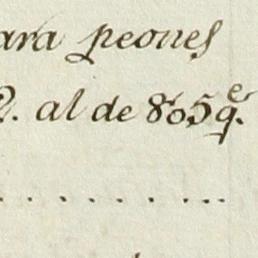 ara peones
2. al de 8'05 q.e
. . . . . . . . ...